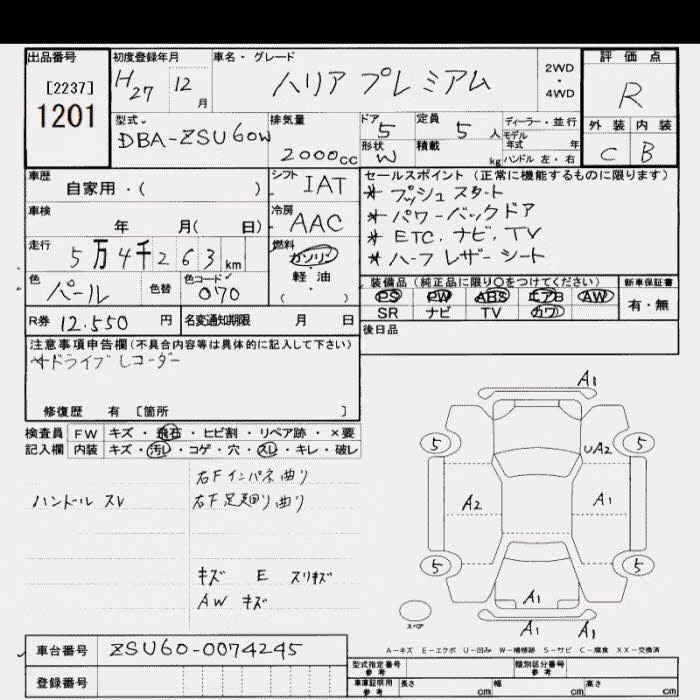 出品番号 初度登録年月 車名・グレード 評価点
[2237] H27 12月 ハリア プレミアム 2WD・4WD R
1201
型式 DBA-ZSU60W 排気量 2000cc ドア 5 定員 5人 ディーラー・並行 外装 内装
形状 W 積載 kg モデル年式 年 ハンドル 左・右 C B
車歴 自家用・( ) シフト IAT セールスポイント (正常に機能するものに限ります)
* プッシュスタート
車検 年 月( 日) 冷房 AAC * パワーバックドア
* ETC, ナビ, TV
走行 5万4千263km 燃料 ガソリン * ハーフレザーシート
軽・油
( )
色 パール 色替 色コード 070 装備品 (純正品に限り○をつけてください) 新車保証書
PS PW ABS エアB AW 有・無
SR ナビ TV カワ
R券 12.550円 名変通知期限 月 日 後日品
注意事項申告欄(不具合内容等は具体的に記入して下さい)
*ドライブレコーダー
修復歴 有 [箇所 ]
検査員 FW キズ・飛石・ヒビ割・リペア跡・×要
記入欄 内装 キズ・汚レ・コゲ・穴・スレ・キレ・破レ
右Fインパネ曲り
ハンドル スレ 右F足廻り曲り
キズ E スリキズ
AW キズ
A1
5 5
UA2
A2 A1
5 5
A1
スペア A1 A1
A-キズ E-エクボ U-凹み W-補修跡 S-サビ C-腐食 XX-交換済
車台番号 ZSU60-0074245
登録番号
型式指定番号 参考 類別区分番号 参考
車庫証明用 参考 長さ cm 幅 cm 高さ cm